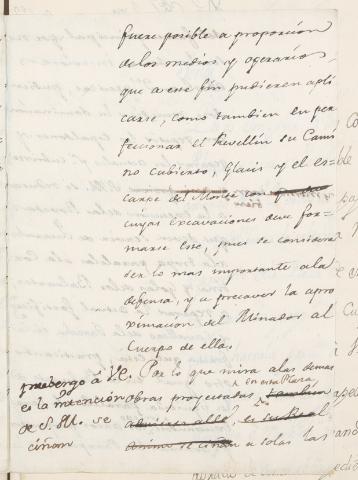 fuere posible a proporcion
de los medios y operarios
que a ese fin pudieren apli
carse, como tambien en per
feccionar el Revellin su Cami
no cubierto, Glasis y el es-
carpe del Monte con
cuyas excavaciones deve for-
marse este, pues se considera
ser lo mas importante a la
defensa, y a precaver la apro
ximacion del Minador al
Cuerpo de ellas.
Por lo que mira a las demas
obras proyectadas en esta Plaza tambien
prebengo á V.E.
es la intencion
de S. M. se
ciñan
es su Real
animo se ciñan a solas las